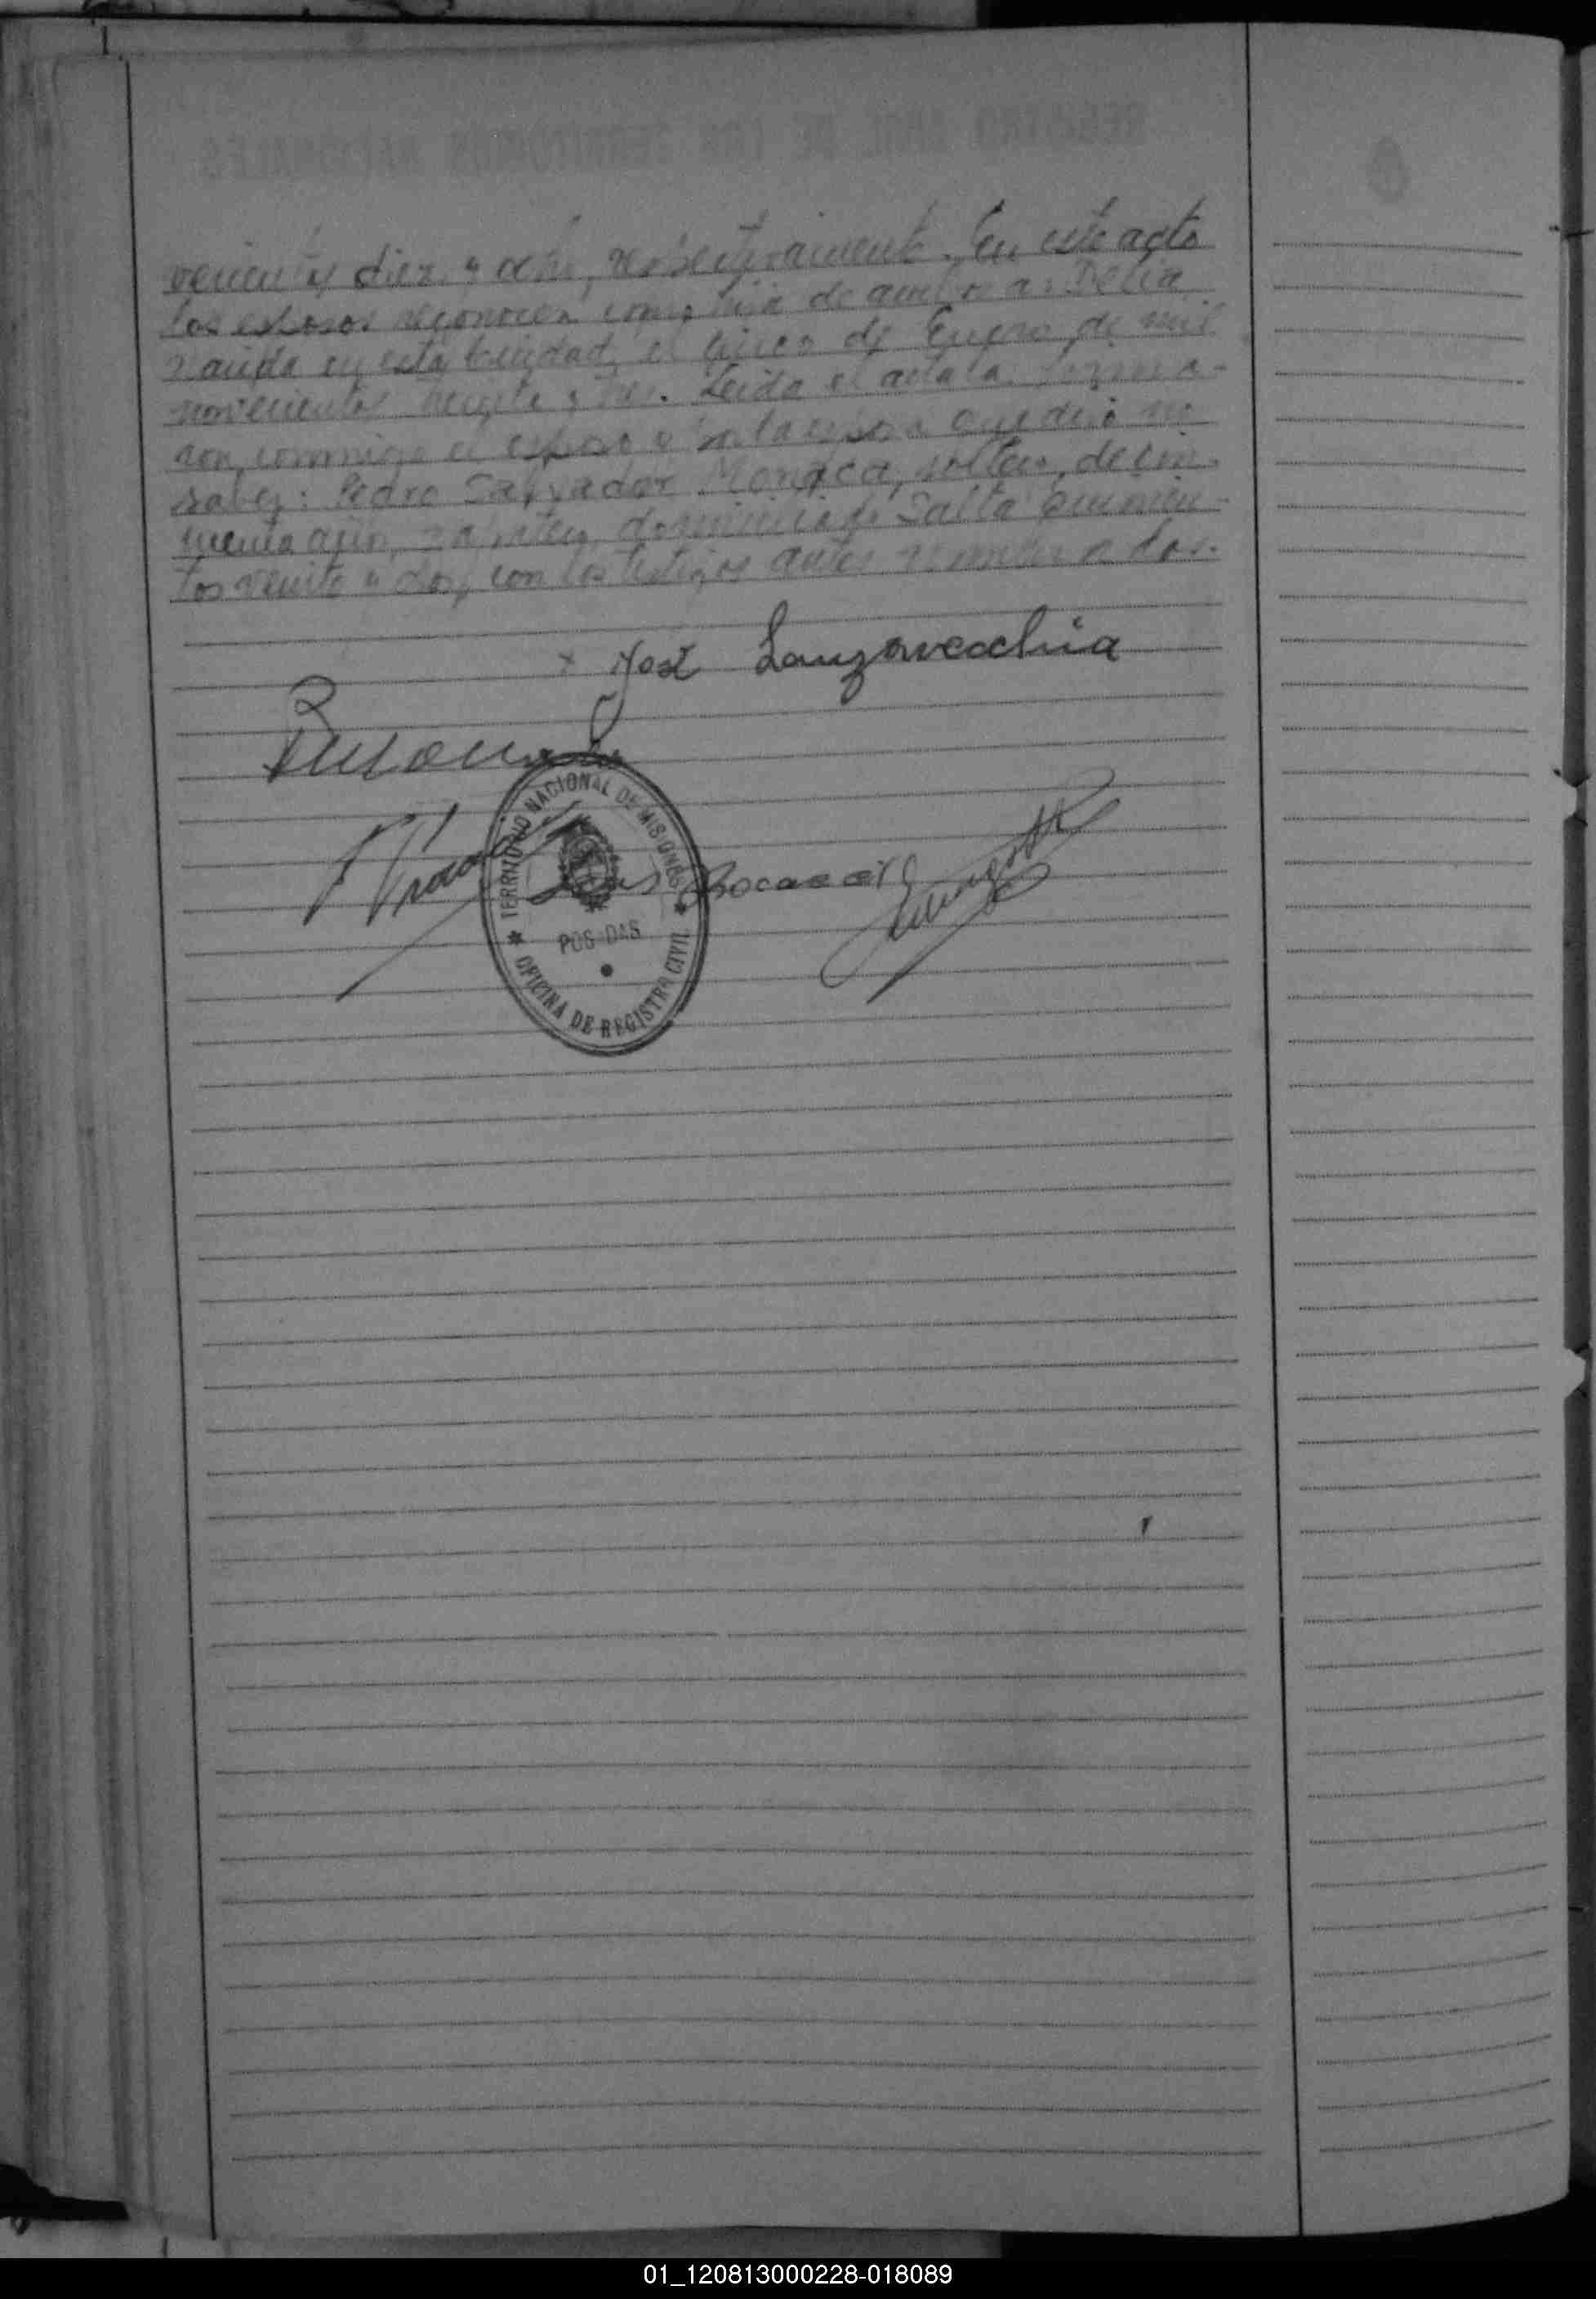 diez y ocho, respectivamente. En este acto
los esposos reconocen como hija de ambos a: Delia
nacida en esta Ciudad, el cinco de Enero de mil
novecientos treinta y tres. Leida el acta la firma-
ron, conmigo el esposo y por la esposa que dijo no
saber: Pedro Salvador Monaca, soltero, de cin-
cuenta años, zapatero, domiciliado Salta quinien-
tos veinte y dos, con los testigos antes nombrados.
José Lanzavecchia
TERRITORIO NACIONAL DE MISIONES
POSADAS
OFICINA DE REGISTRO CIVIL
01_120813000228-018089